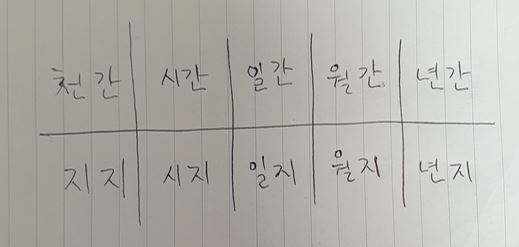 천간 시간 일간 월간 년간
지지 시지 일지 월지 년지